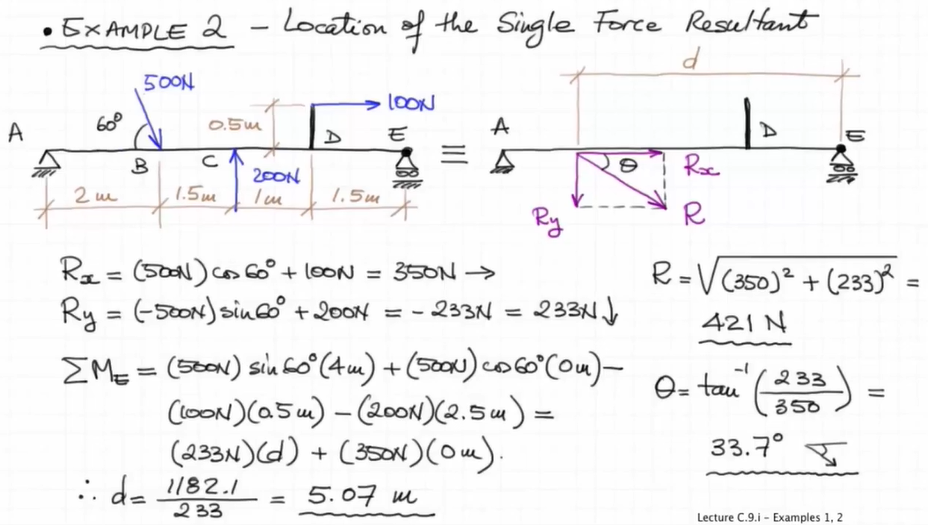 • EXAMPLE 2 – Location of the Single Force Resultant
d
500N
100N
A 60° 0.5m D E ≡ A D E
B C
200N
θ Rx
2m 1.5m 1m 1.5m
Ry R
Rx = (500N) cos 60° + 100N = 350N →
Ry = (-500N) sin 60° + 200N = - 233N = 233N ↓
ΣM_E = (500N) sin 60° (4m) + (500N) cos 60° (0m) –
(100N)(0.5m) – (200N)(2.5m) =
(233N)(d) + (350N)(0m).
∴ d = 1182.1 / 233 = 5.07 m
R = √(350)² + (233)² =
421 N
θ = tan⁻¹ (233 / 350) =
33.7°
Lecture C.9.i – Examples 1, 2